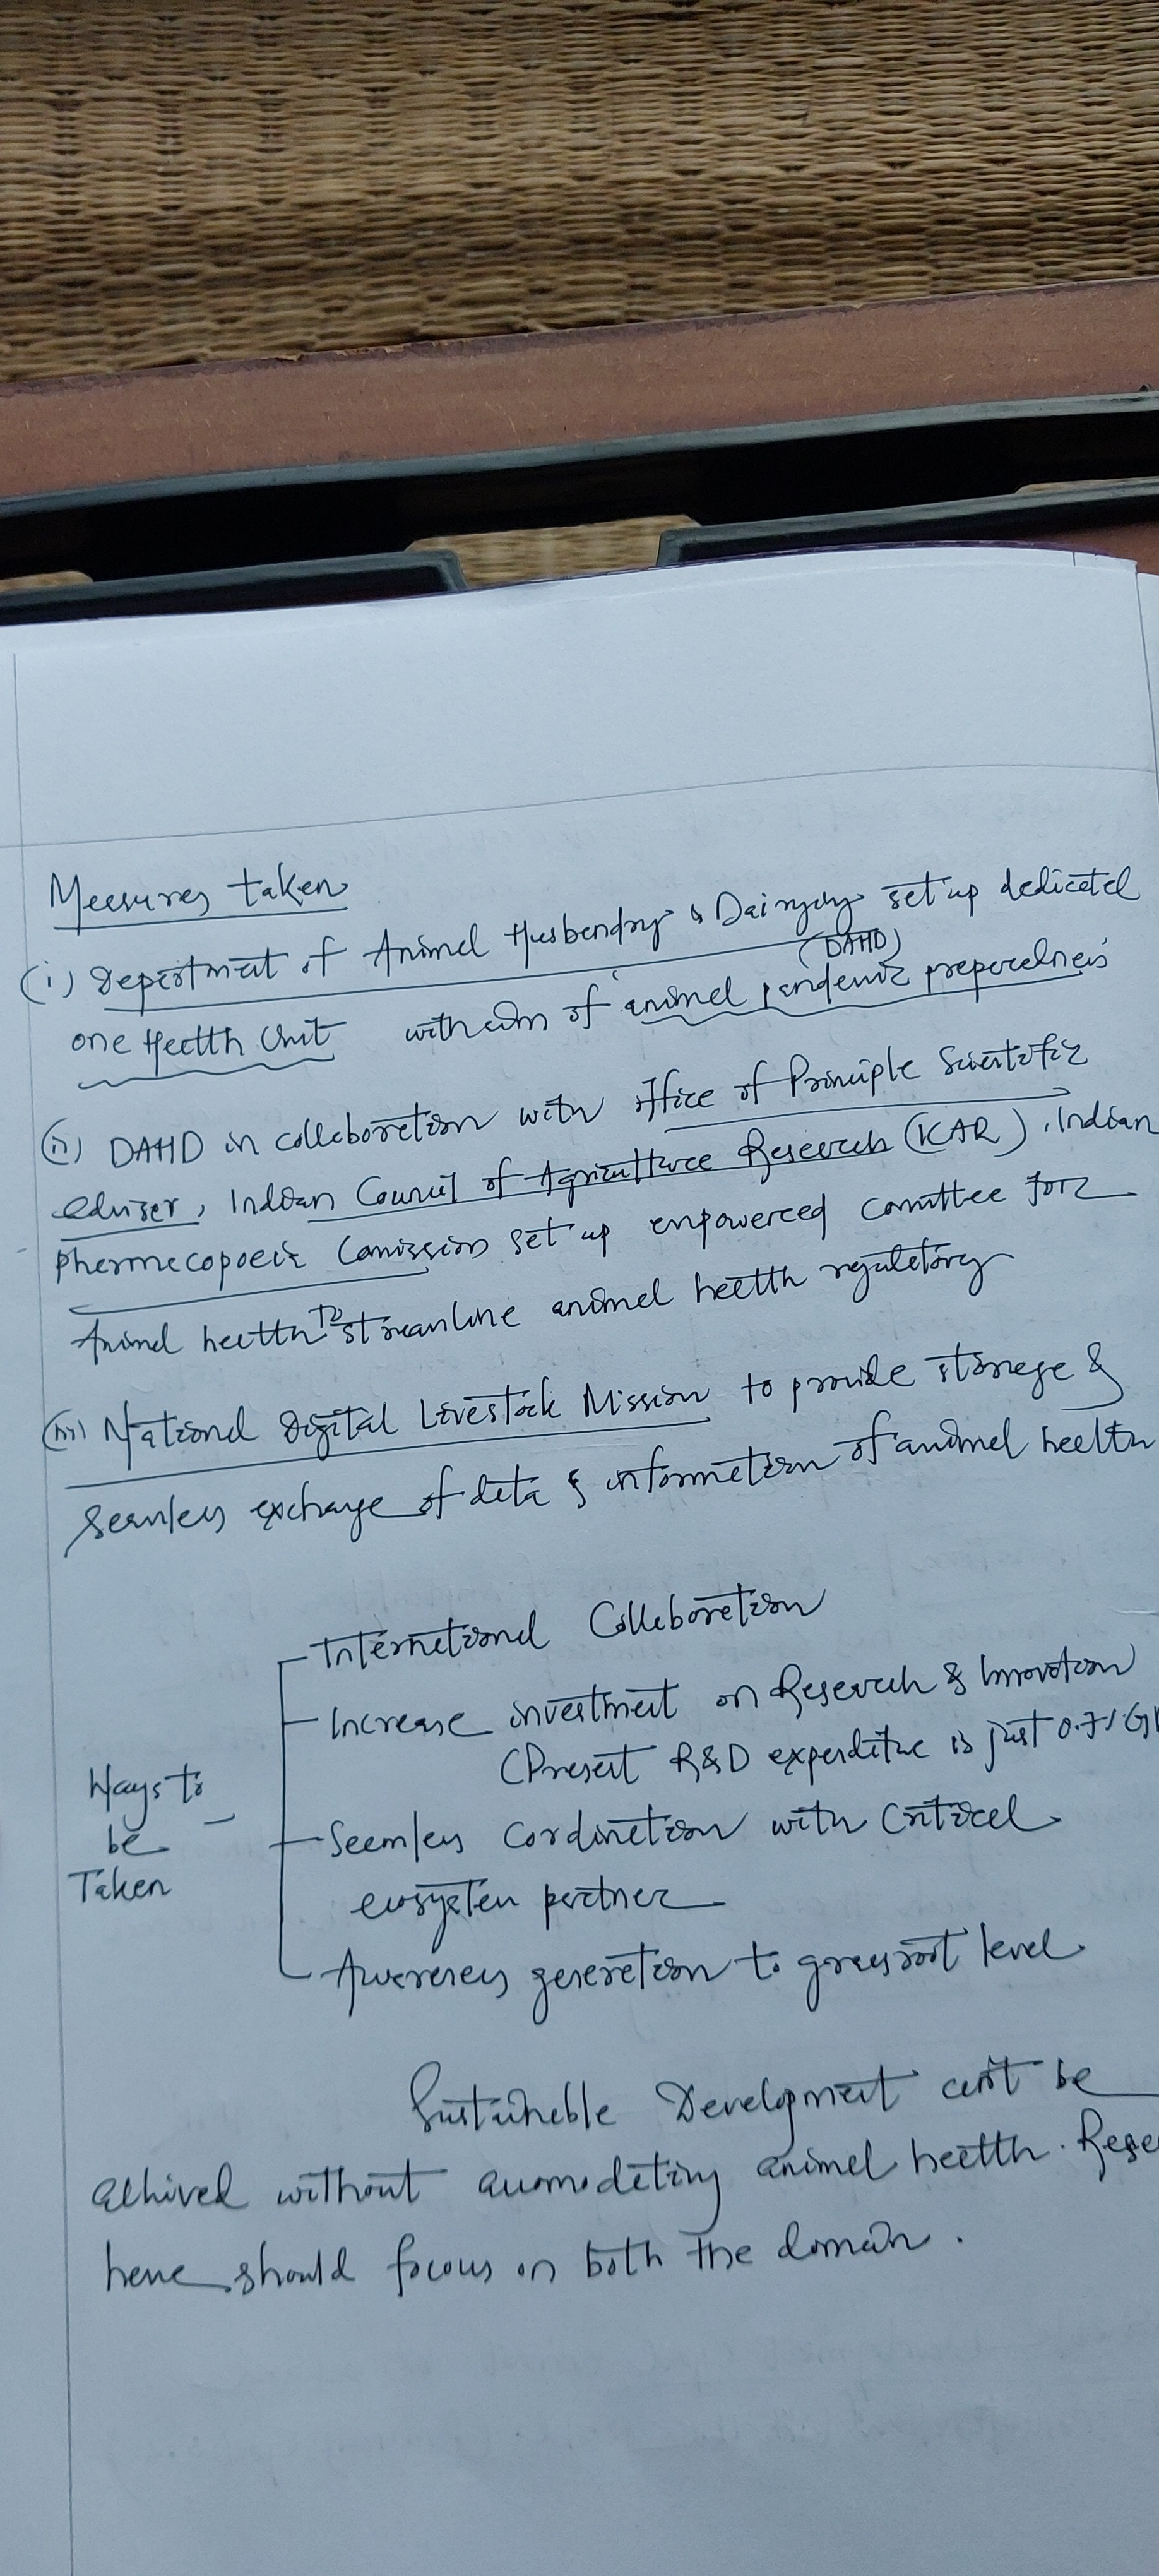 Measures taken
(i) Department of Animal Husbandry & Dairying set up dedicated
(DAHD)
one Health Unit with aim of animal pandemic preparedness
(ii) DAHD in collaboration with office of Principle Scientific
adviser, Indian Council of Agriculture Research (ICAR), Indian
pharmacopoeia Comission set up empowered comittee for
Animal health To streamline animal health regulatory
(iii) National Digital Livestock Mission to provide storage &
seamless exchange of data & information of animal health
International Collaboration
Increase investment on Research & Innovation
(Present R&D expenditure is just 0.7% G
Ways to
be
Taken
Seemless Cordination with Critical
ecosystem partner
Awareness generation to grassroot level
Sustainable Development can't be
achived without accomodating animal health. Rese
hence should focus on both the domain.